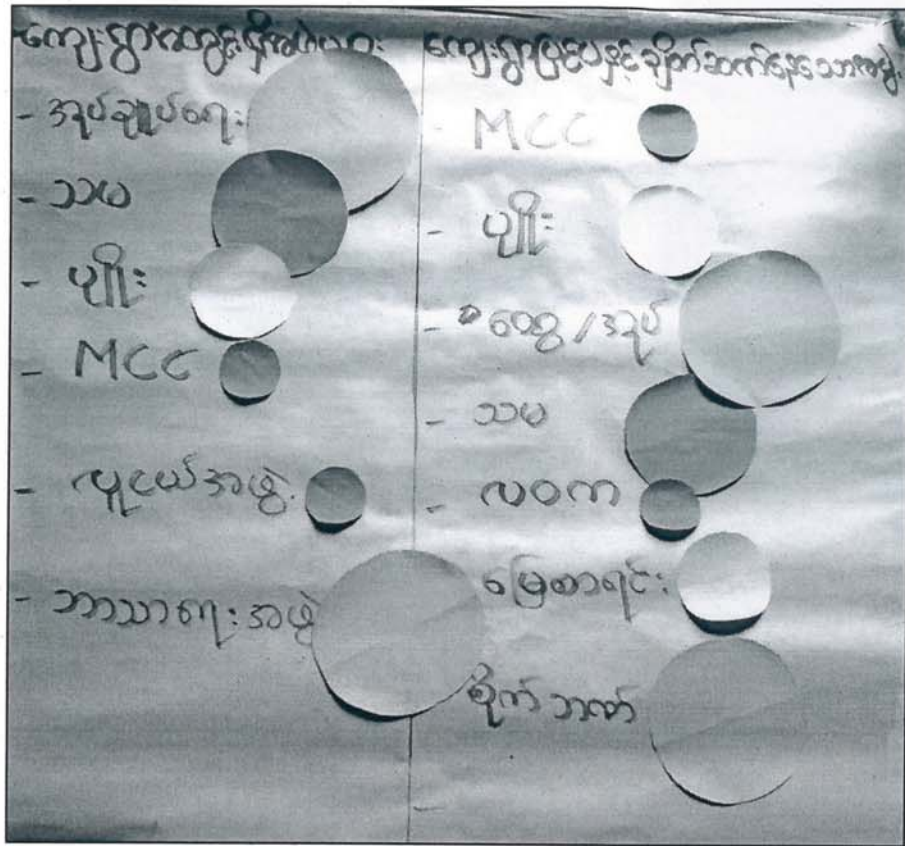 ကျေးရွာအတွင်းရှိအဖွဲ့များ
- အုပ်ချုပ်ရေး
- သမ
- ပျိုး
- MCC
- လူငယ်အဖွဲ့
- ဘာသာရေးအဖွဲ့
ကျေးရွာပြင်ပနှင့် ချိတ်ဆက်နေသောအဖွဲ့
- MCC
- ပျိုး
- ထွေ/အုပ်
- သမ
- လဝက
မြေစာရင်း
စိုက်ဘဏ်